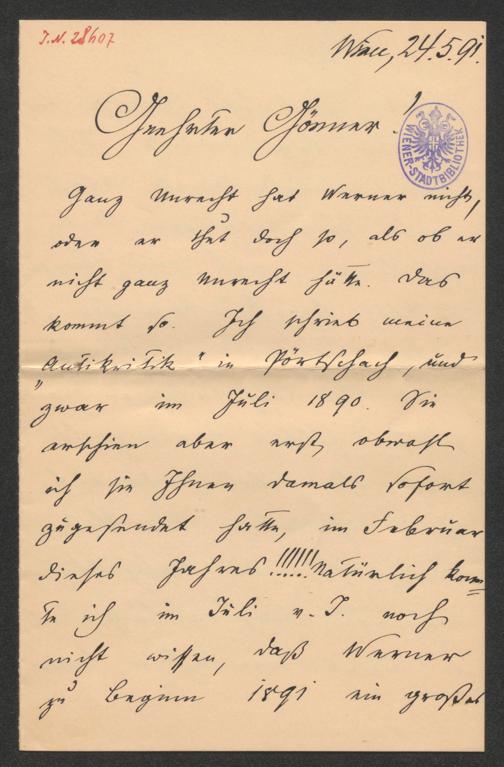 J.N. 28607
Wien, 24.5.91.
WIENER-STADTBIBLIOTHEK
Geehrter Gönner!
Ganz unrecht hat Werner nicht,
oder er thut doch so, als ob er
nicht ganz unrecht hätte. Das
kommt so. Ich schrieb meine
„Antikritik“ in Pörtschach, und
zwar im Juli 1890. Sie
erschien aber erst, obwohl
ich sie Ihnen damals sofort
zugesendet hatte, im Februar
dieses Jahres!!!!!! Natürlich konn=
te ich im Juli v. J. noch
nicht wissen, daß Werner
zu Beginn 1891 ein großes